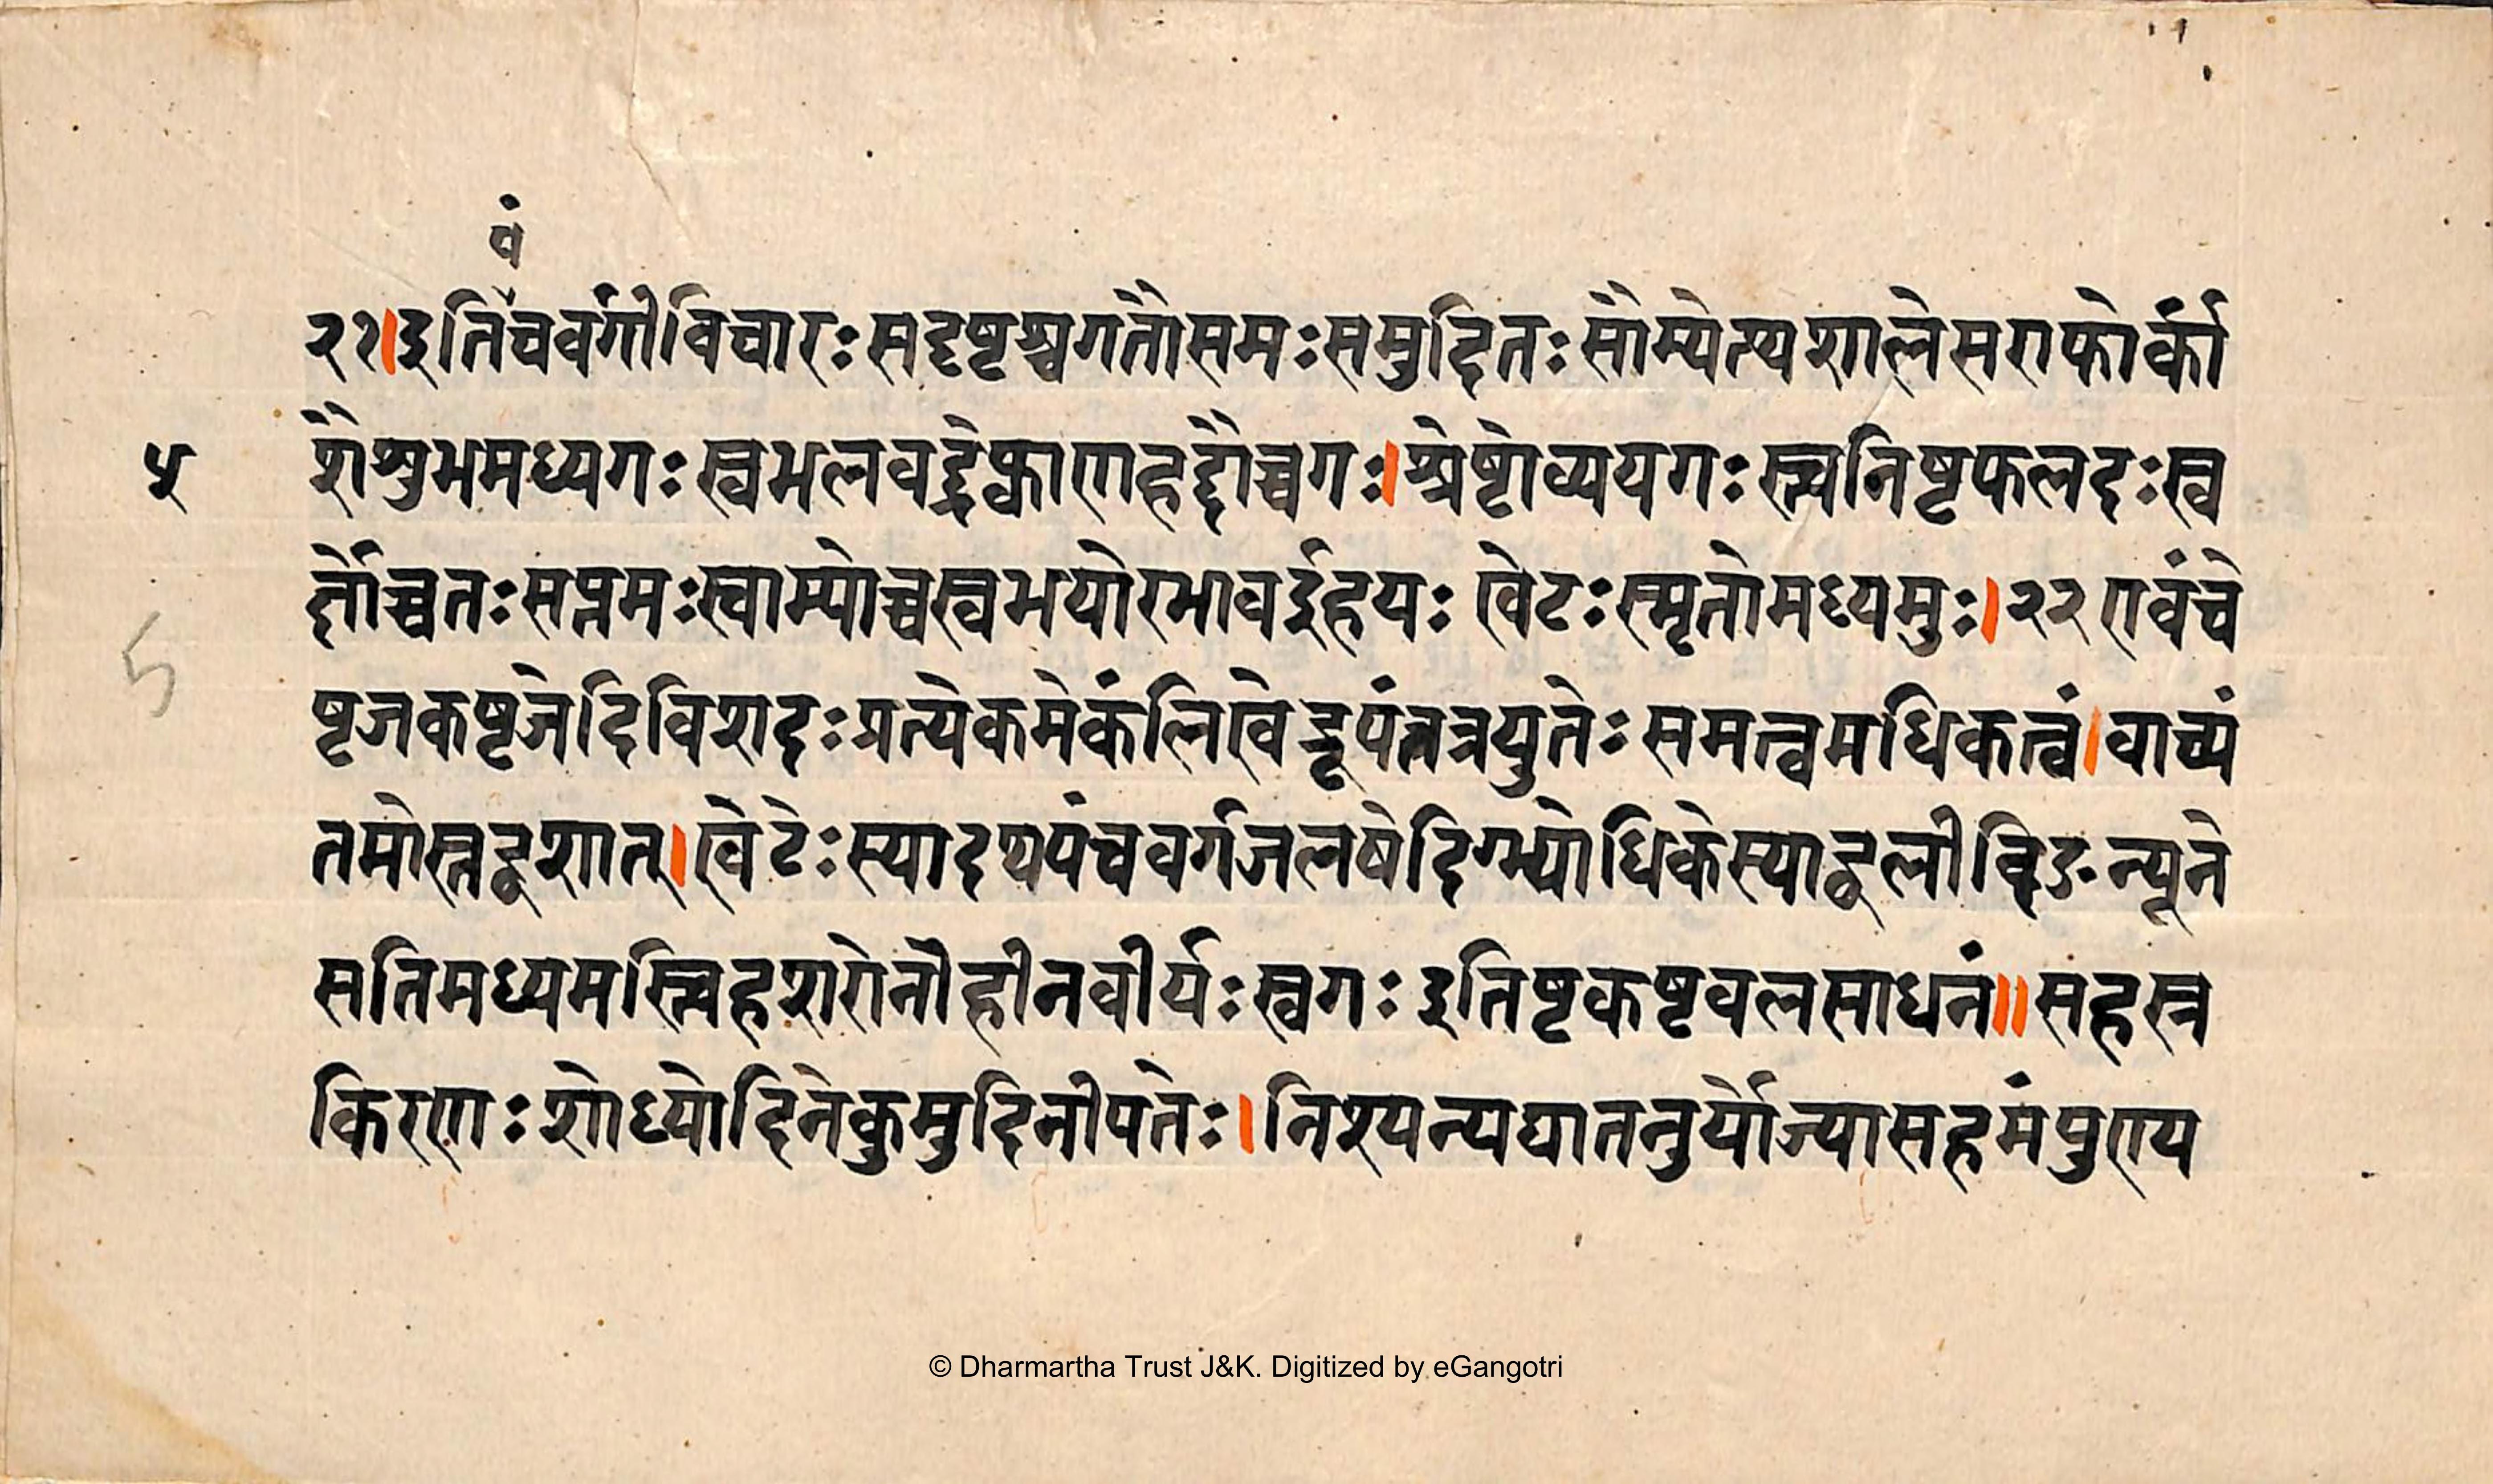 वं
२१।इतिचवर्गीविचारः सदृष्टश्चगतौसमः समुदितः सौम्येत्यशालेसराफोर्का
५ शैशुभमध्यगः स्वभलवद्रेष्काणहद्दौच्चगः।श्रेष्टोव्ययगः स्त्वनिष्टफलदः स्व
र्त्तोच्चतः सप्नमः स्वाम्योच्चस्वभयोरभावर्इहयः खेटः स्मृतोमध्यमुः।२२ एवंचे
5
ष्टजकष्टजेदिविशदः प्रत्येकमेकंलिखेद्रूपंत्नत्रयुतेः समत्वमधिकत्वं।वाच्यं
तमोस्नद्वशात्।खेटेः स्यादथपंचवर्गजलषेदिग्भ्योधिकेस्याद्वलीविङन्यूने
सतिमध्यमस्त्विहशरोनौहीनवीर्यः स्वगः इतिष्टकष्टवलसाधनं॥सहस्त्र
किरणः शोध्योदिनेकुमुदिनीपतेः।निश्यन्यद्यातनुर्योज्यासहमंपुण्य
© Dharmartha Trust J&K. Digitized by eGangotri